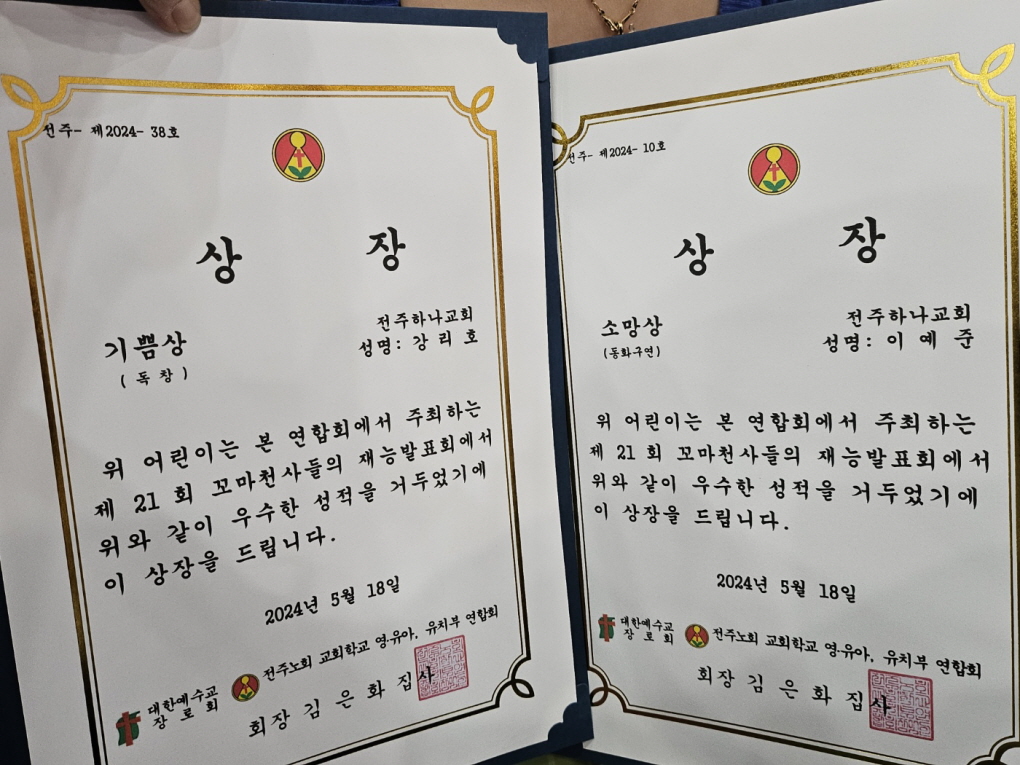 전주- 제2024- 38호
상 장
기쁨상
( 독 창 )
전주하나교회
성명: 강 리 호
위 어린이는 본 연합회에서 주최하는
제 21 회 꼬마천사들의 재능발표회에서
위와 같이 우수한 성적을 거두었기에
이 상장을 드립니다.
2024년 5월 18일
대한예수교
장 로 회
전주노회 교회학교 영·유아, 유치부 연합회
회장 김 은 화 집사
전주- 제2024- 10호
상 장
소망상
(동화구연)
전주하나교회
성명: 이 예 준
위 어린이는 본 연합회에서 주최하는
제 21 회 꼬마천사들의 재능발표회에서
위와 같이 우수한 성적을 거두었기에
이 상장을 드립니다.
2024년 5월 18일
대한예수교
장 로 회
전주노회 교회학교 영·유아, 유치부 연합회
회장 김 은 화 집사